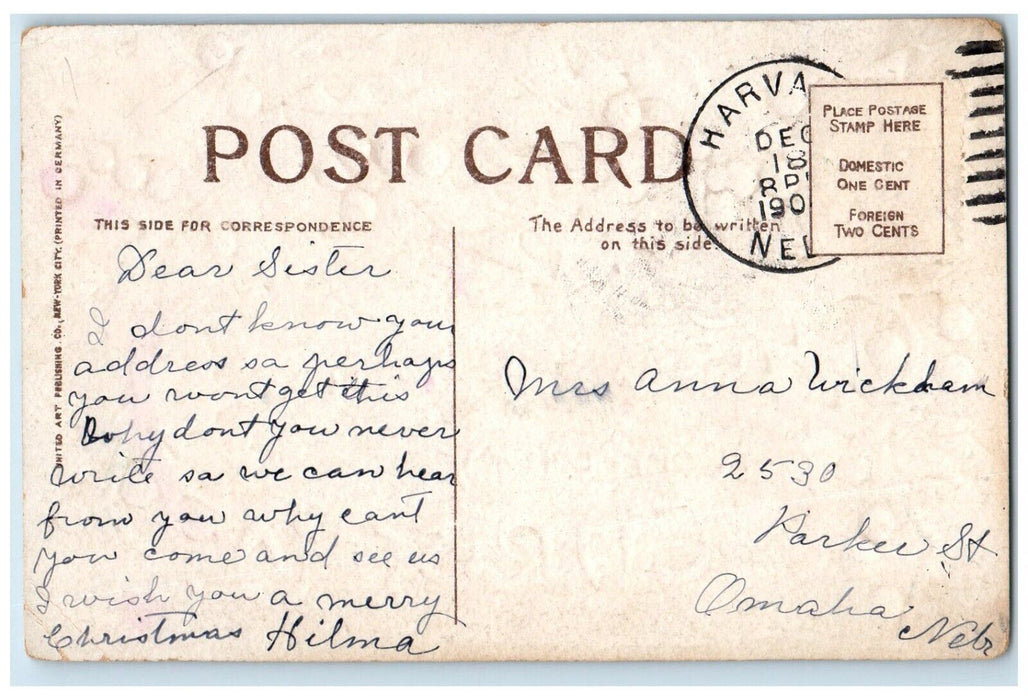 POST CARD
THIS SIDE FOR CORRESPONDENCE
The Address to be written
on this side.
UNITED ART PUBLISHING. CO., NEW-YORK CITY. (PRINTED IN GERMANY)
HARVA
DEC
18
8 P
190
NEB
PLACE POSTAGE
STAMP HERE
DOMESTIC
ONE CENT
FOREIGN
TWO CENTS
Dear Sister
I dont know your
address so perhaps
you wont get this
Why dont you never
write so we can hear
from you why cant
you come and see us
I wish you a merry
Christmas Hilma
Mrs Anna Wickham
2530
Parker St
Omaha
Nebr